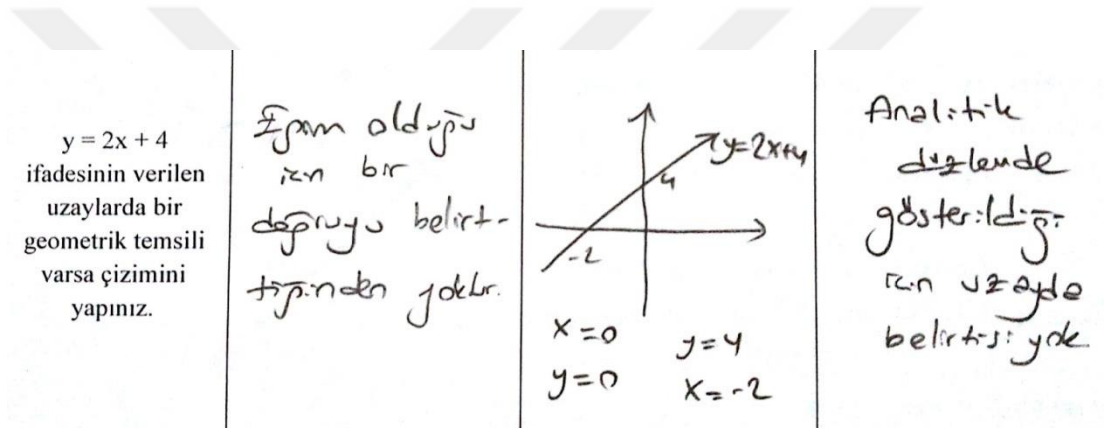 y = 2x + 4
ifadesinin verilen
uzaylarda bir
geometrik temsili
varsa çizimini
yapınız.
Eğim olduğu
için bir
doğruyu belirt-
tiğinden yoktur.
y=2x+4
4
-2
x=0 y=4
y=0 x=-2
Analitik
düzlemde
gösterildiği
için uzayda
belirtisi yok